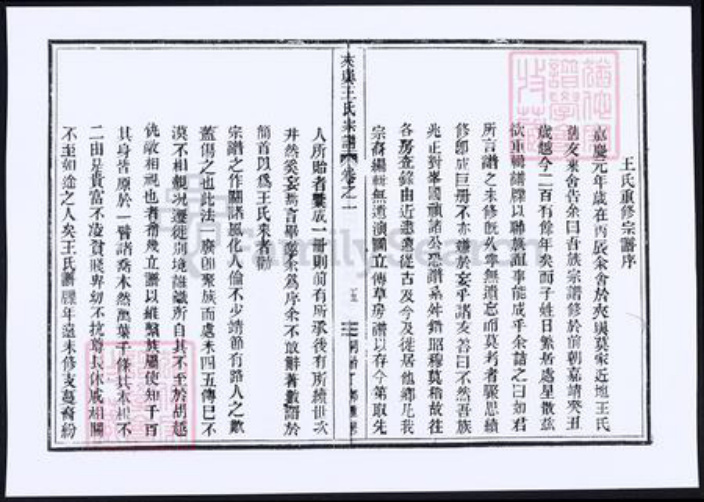 王氏重修宗譜序
嘉慶元年歲在丙辰余舍於夾輿莫家近地王氏
舊友來舍告余曰吾族宗譜修於前朝嘉靖癸丑
歲越今二百有餘年矣而子姓日繁居處星散茲
欲重緝譜牒以聯族誼事能成乎余詰之曰如君
所言譜之未修旣久寧無遺忘而莫考者驟思續
修卽成巨册不亦嫌於妄乎諸友答曰不然吾族
兆正對峯國禎諸公恐譜系舛錯昭穆莫稽故往
各房查錄由近悉遠從古及今及徙居他鄉凡我
宗裔編輯無遺演圖立傳草房譜以存今第取先
夾輿王氏宗譜 卷之一
人所貽者彙成一冊則前有所承後有所續世次
井然奚妄焉言畢邀余為序余不敢辭著數語於
簡首以為王氏來者勸
宗譜之作關諸風化人倫不少靖節有路人之歎
蓋傷之也此法 廢卽聚族而處未四五傳已不
漠不相親况遷徙別境誰識所自其不至於胡越
仇敵相視也者希幾立譜以維繫族屬使知千百
其身皆原於一譬諸喬木然萬葉千條其本根不
二由是貴富不凌貧賤卑幼不抗尊長休戚相關
不至如途之人矣王氏譜牒年遠未修支蔓裔紛